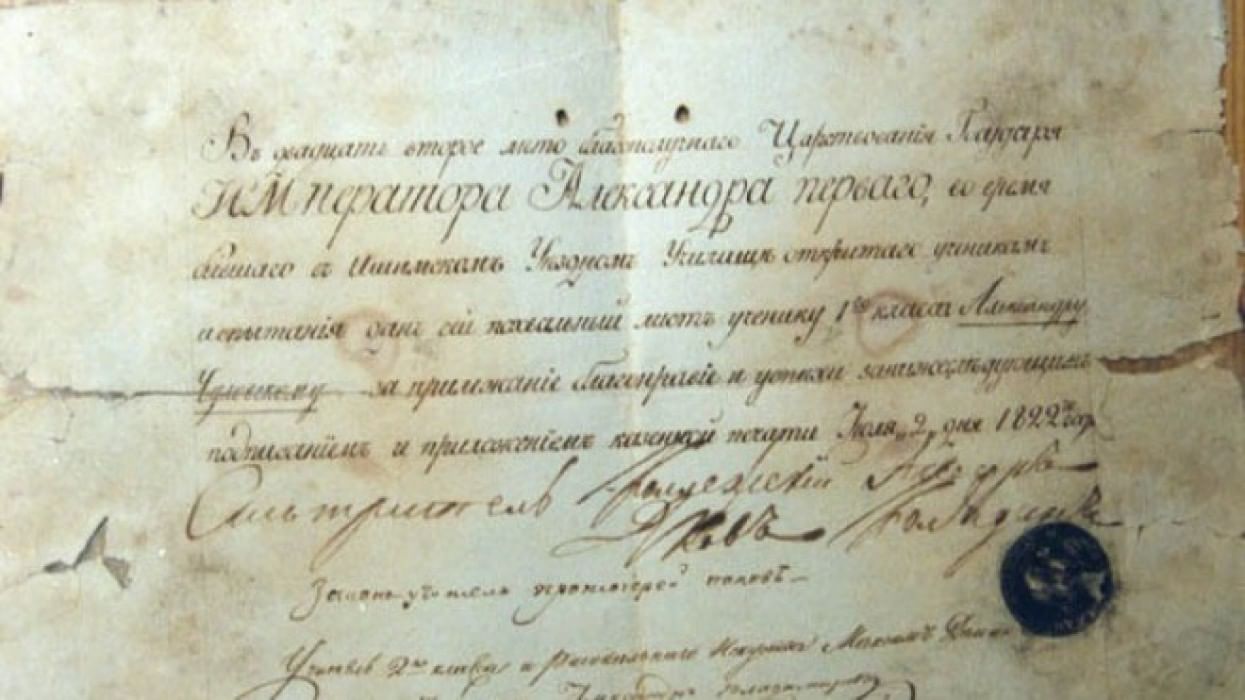 Въ двадцать второе лѣто благополучнаго Царствованія Государя
ИМператора Александра перваго, во время
бывшаго въ Ишимскомъ Уѣздномъ Училищѣ открытаго ученикамъ
испытанія данъ сей похвальный листъ ученику 1го класса Александру
за прилѣжаніе благонравіе и успѣхи занижеслѣдующимъ
подписаніемъ и приложеніемъ казенной печати Іюля „2„ дня 1822го года
Смотритель
Законоучитель протоіерей поповъ
Учитель 2го класса и Рисовальнаго Искуства Максимъ